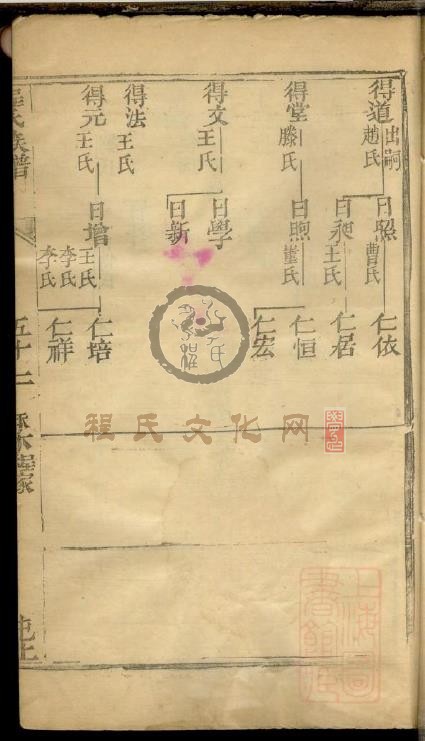 得道 出嗣 趙氏
日照 曹氏
仁依
日昶 王氏
仁居
得堂 滕氏
日煦 董氏
仁恒
仁宏
得文 王氏
日學
日新
得法 王氏
得元 王氏
日增 王氏 李氏 李氏
仁培
仁祥
程氏族譜
五十二
程氏文化网
上海圖書館藏